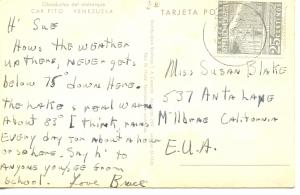 Obeliscos del estanque
CARIPITO VENEZUELA
TARJETA POSTAL
25
Hi Sue
Hows the weather
up there, never gets
below 75° down Here.
the Lake is real warm
about 83° I think, rains
Every day for about a hour
or so here. Say hi to
anyone you see from
school. Love Bruce
Miss Susan Blake
537 Anta Lane
Millbrae California
E.U.A.